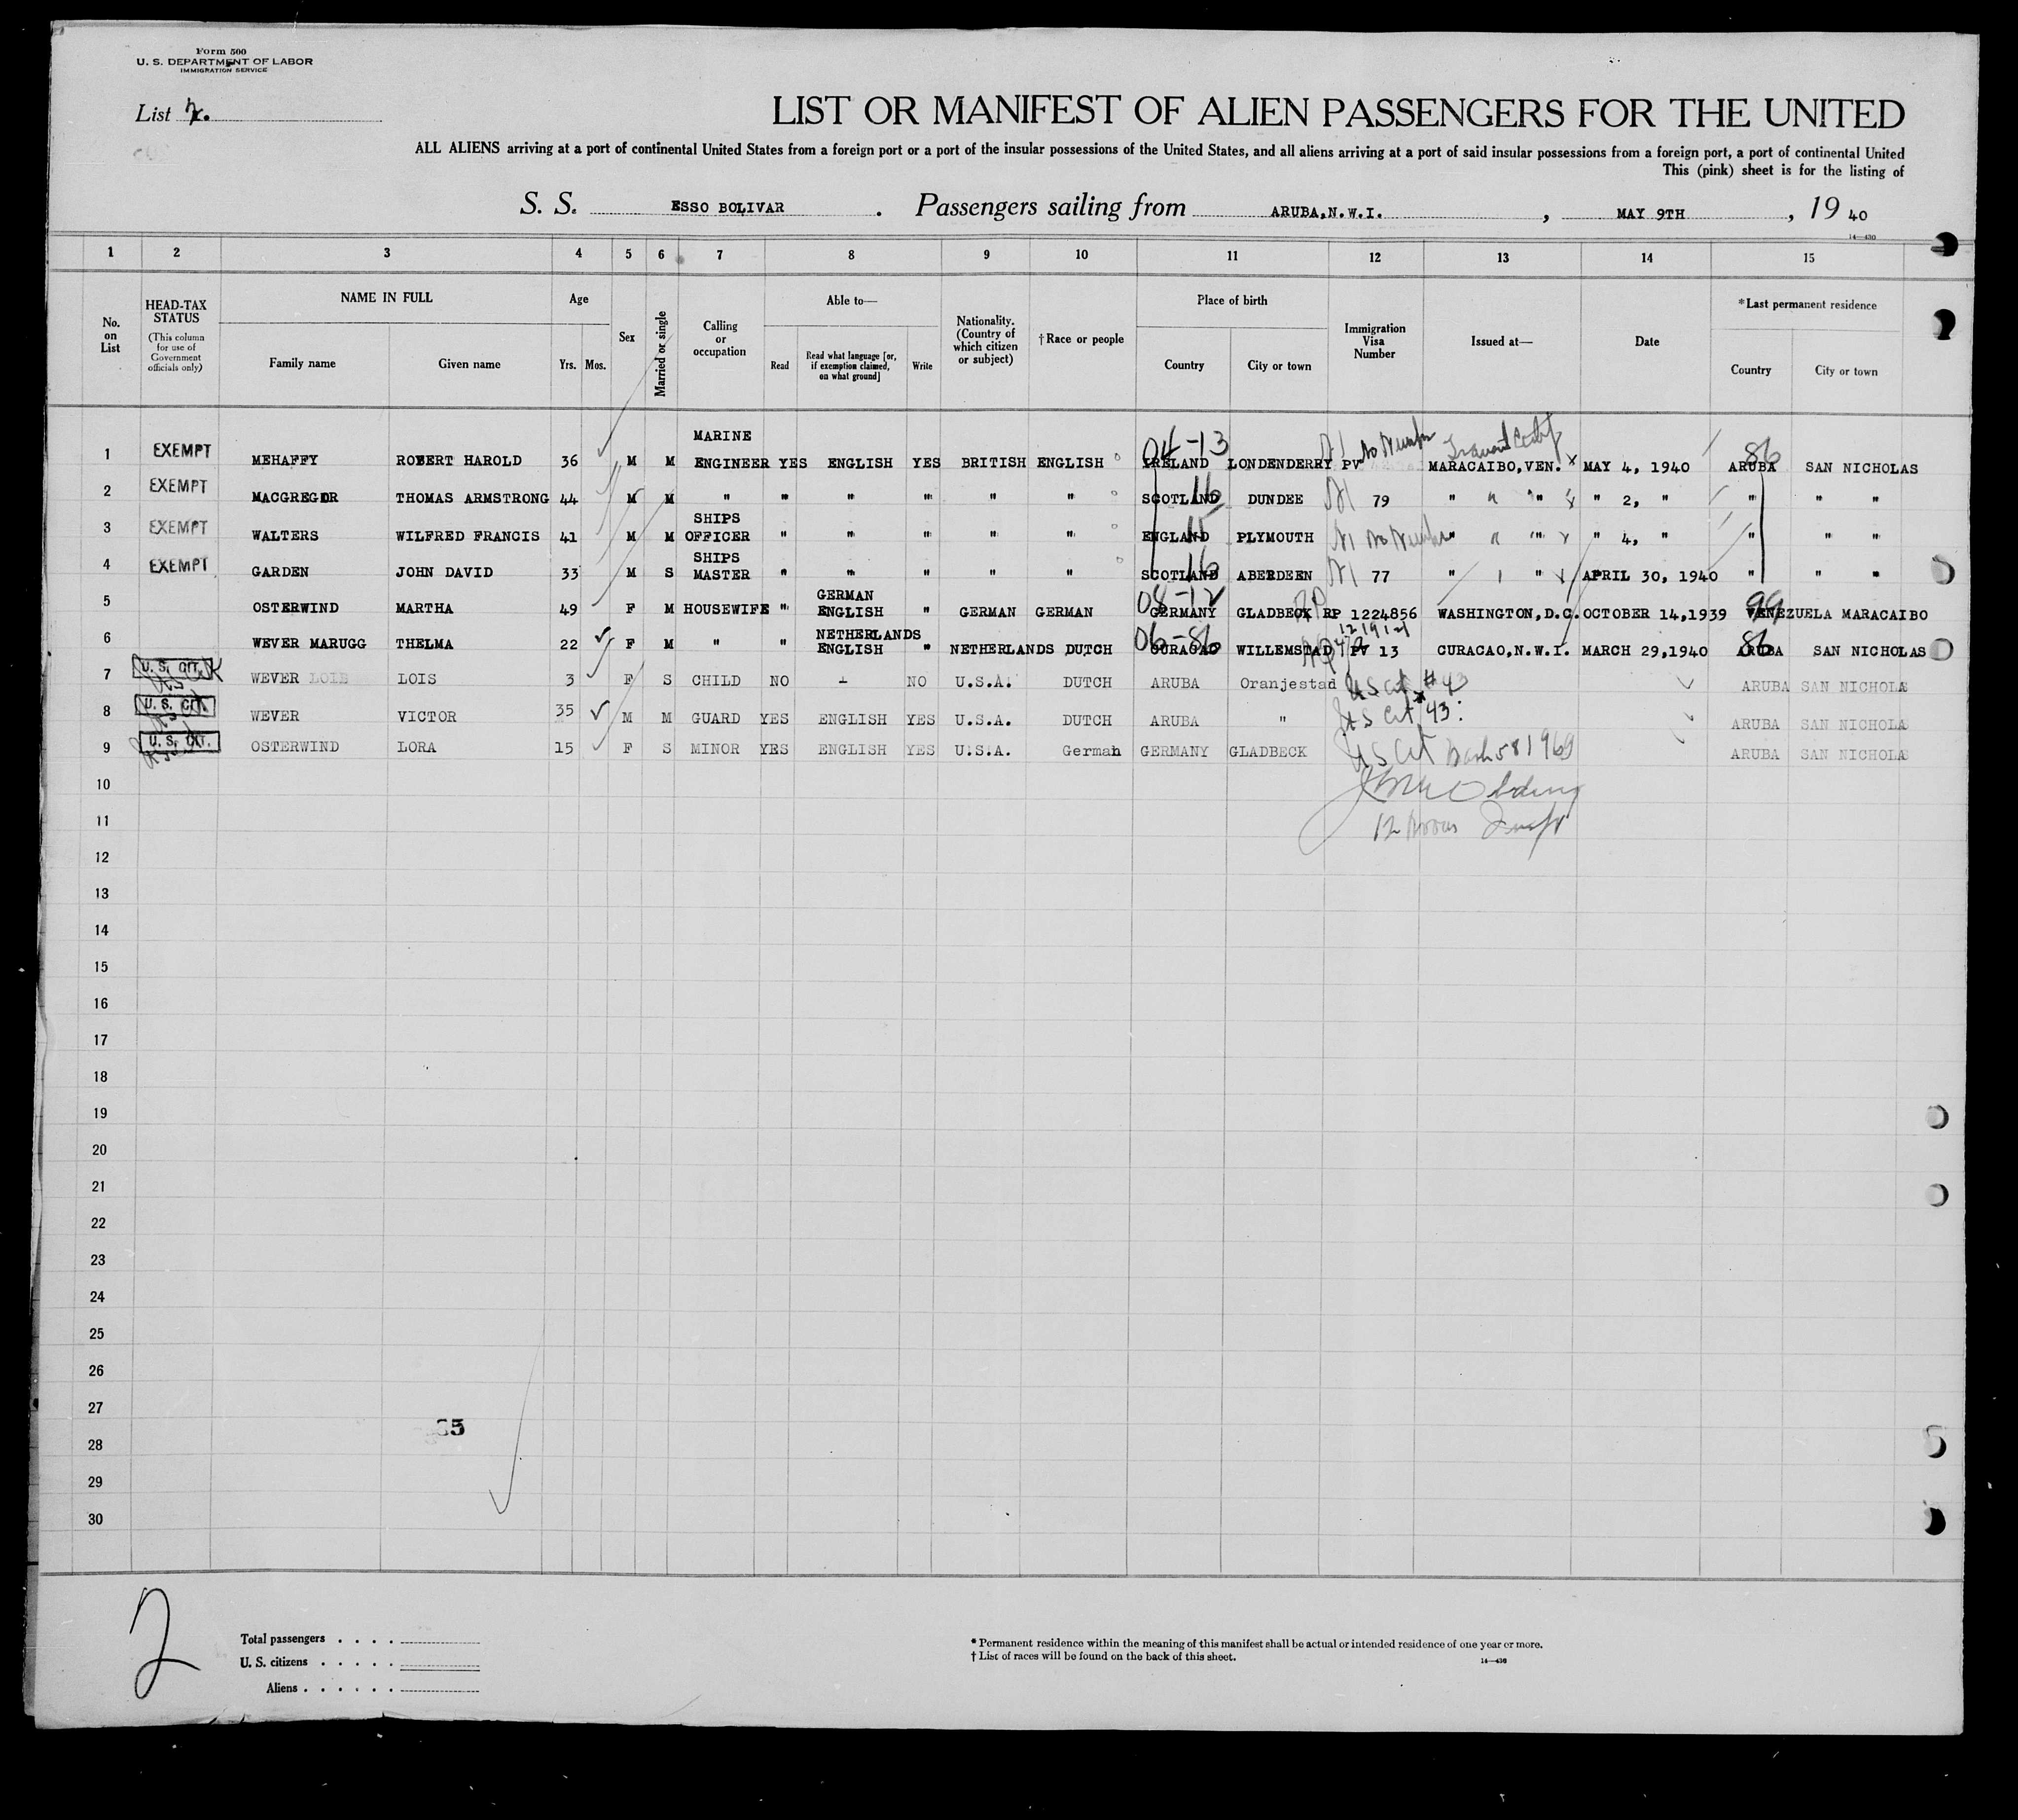 Form 500
U. S. DEPARTMENT OF LABOR
IMMIGRATION SERVICE
List 2.
LIST OR MANIFEST OF ALIEN PASSENGERS FOR THE UNITED
ALL ALIENS arriving at a port of continental United States from a foreign port or a port of the insular possessions of the United States, and all aliens arriving at a port of said insular possessions from a foreign port, a port of continental United
This (pink) sheet is for the listing of
S. S. ESSO BOLIVAR . Passengers sailing from ARUBA,N.W.I. , MAY 9TH , 19 40
14—430
1 2 3 4 5 6 7 8 9 10 11 12 13 14 15
No. on List
HEAD-TAX STATUS (This column for use of Government officials only)
NAME IN FULL Family name Given name
Age Yrs. Mos.
Sex
Married or single
Calling or occupation
Able to— Read Read what language [or, if exemption claimed, on what ground] Write
Nationality. (Country of which citizen or subject)
†Race or people
Place of birth Country City or town
Immigration Visa Number
Issued at—
Date
*Last permanent residence Country City or town
1 EXEMPT MEHAFFY ROBERT HAROLD 36 M M MARINE ENGINEER YES ENGLISH YES BRITISH ENGLISH 04-13 IRELAND LONDENDERRY PV No Number MARACAIBO,VEN. MAY 4, 1940 86 ARUBA SAN NICHOLAS
2 EXEMPT MACGREGOR THOMAS ARMSTRONG 44 M M " " " " " " 16 SCOTLAND DUNDEE 79 " " " " 2, " " " "
3 EXEMPT WALTERS WILFRED FRANCIS 41 M M SHIPS OFFICER " " " " " ENGLAND PLYMOUTH No Number " " " " 4, " " " "
4 EXEMPT GARDEN JOHN DAVID 33 M S SHIPS MASTER " " " " " 16 SCOTLAND ABERDEEN 77 " " APRIL 30, 1940 " " "
5 OSTERWIND MARTHA 49 F M HOUSEWIFE " GERMAN ENGLISH " GERMAN GERMAN 08-12 GERMANY GLADBECK RP 1224856 WASHINGTON,D.C. OCTOBER 14,1939 99 VENEZUELA MARACAIBO
6 WEVER MARUGG THELMA 22 F M " " NETHERLANDS ENGLISH " NETHERLANDS DUTCH 06-86 CURACAO WILLEMSTAD PV 13 CURACAO,N.W.I. MARCH 29,1940 86 ARUBA SAN NICHOLAS
7 U. S. CIT. WEVER LOIS 3 F S CHILD NO - NO U.S.A. DUTCH ARUBA Oranjestad US Cit #43 ARUBA SAN NICHOLA
8 U. S. CIT. WEVER VICTOR 35 M M GUARD YES ENGLISH YES U.S.A. DUTCH ARUBA " US Cit 43: ARUBA SAN NICHOLA
9 U. S. CIT. OSTERWIND LORA 15 F S MINOR YES ENGLISH YES U.S.A. German GERMANY GLADBECK US Cit 581969 ARUBA SAN NICHOLA
10
11
12
13
14
15
16
17
18
19
20
21
22
23
24
25
26
27
28
29
30
2
Total passengers . . . .
U. S. citizens . . . . .
Aliens . . . . . .
* Permanent residence within the meaning of this manifest shall be actual or intended residence of one year or more.
† List of races will be found on the back of this sheet.
14—430